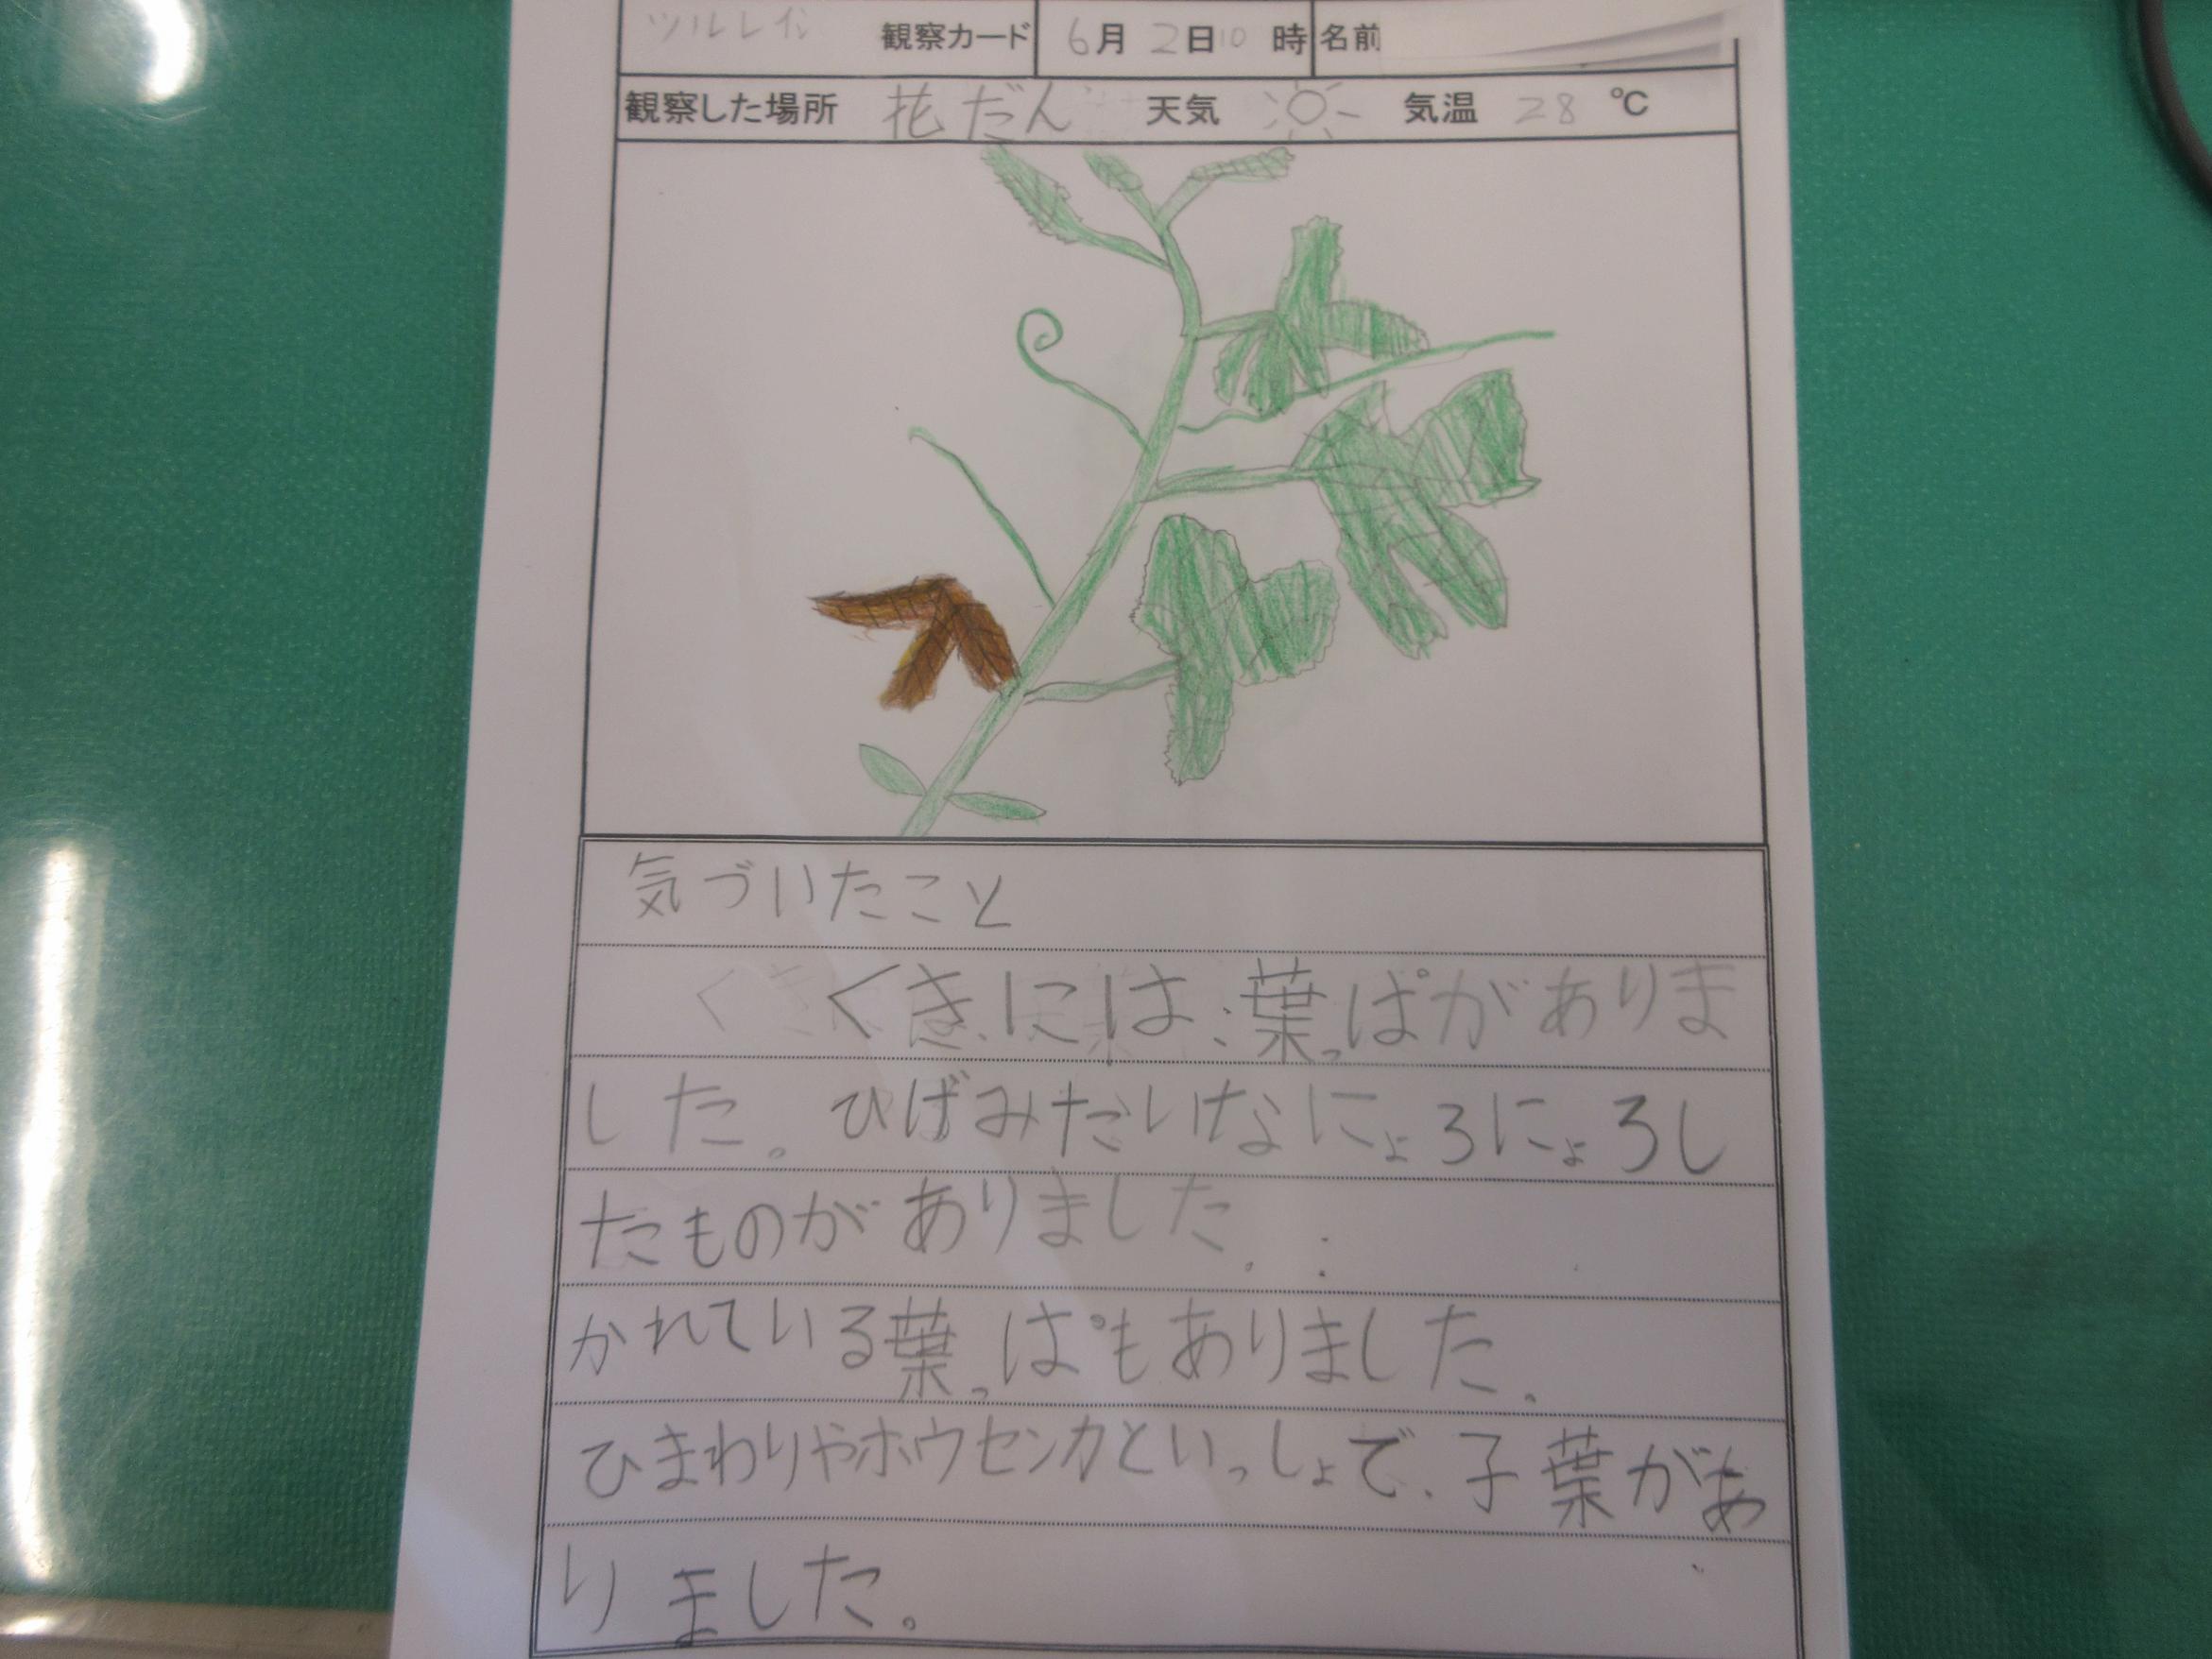 ツルレイシ 観察カード 6月 2日10 時 名前
観察した場所 花だん 天気 気温 28 ℃
気づいたこと
くきには、葉っぱがありま
した。ひげみたいなにょろにょろし
たものがありました。
かれている葉っぱもありました。
ひまわりやホウセンカといっしょで、子葉があ
りました。